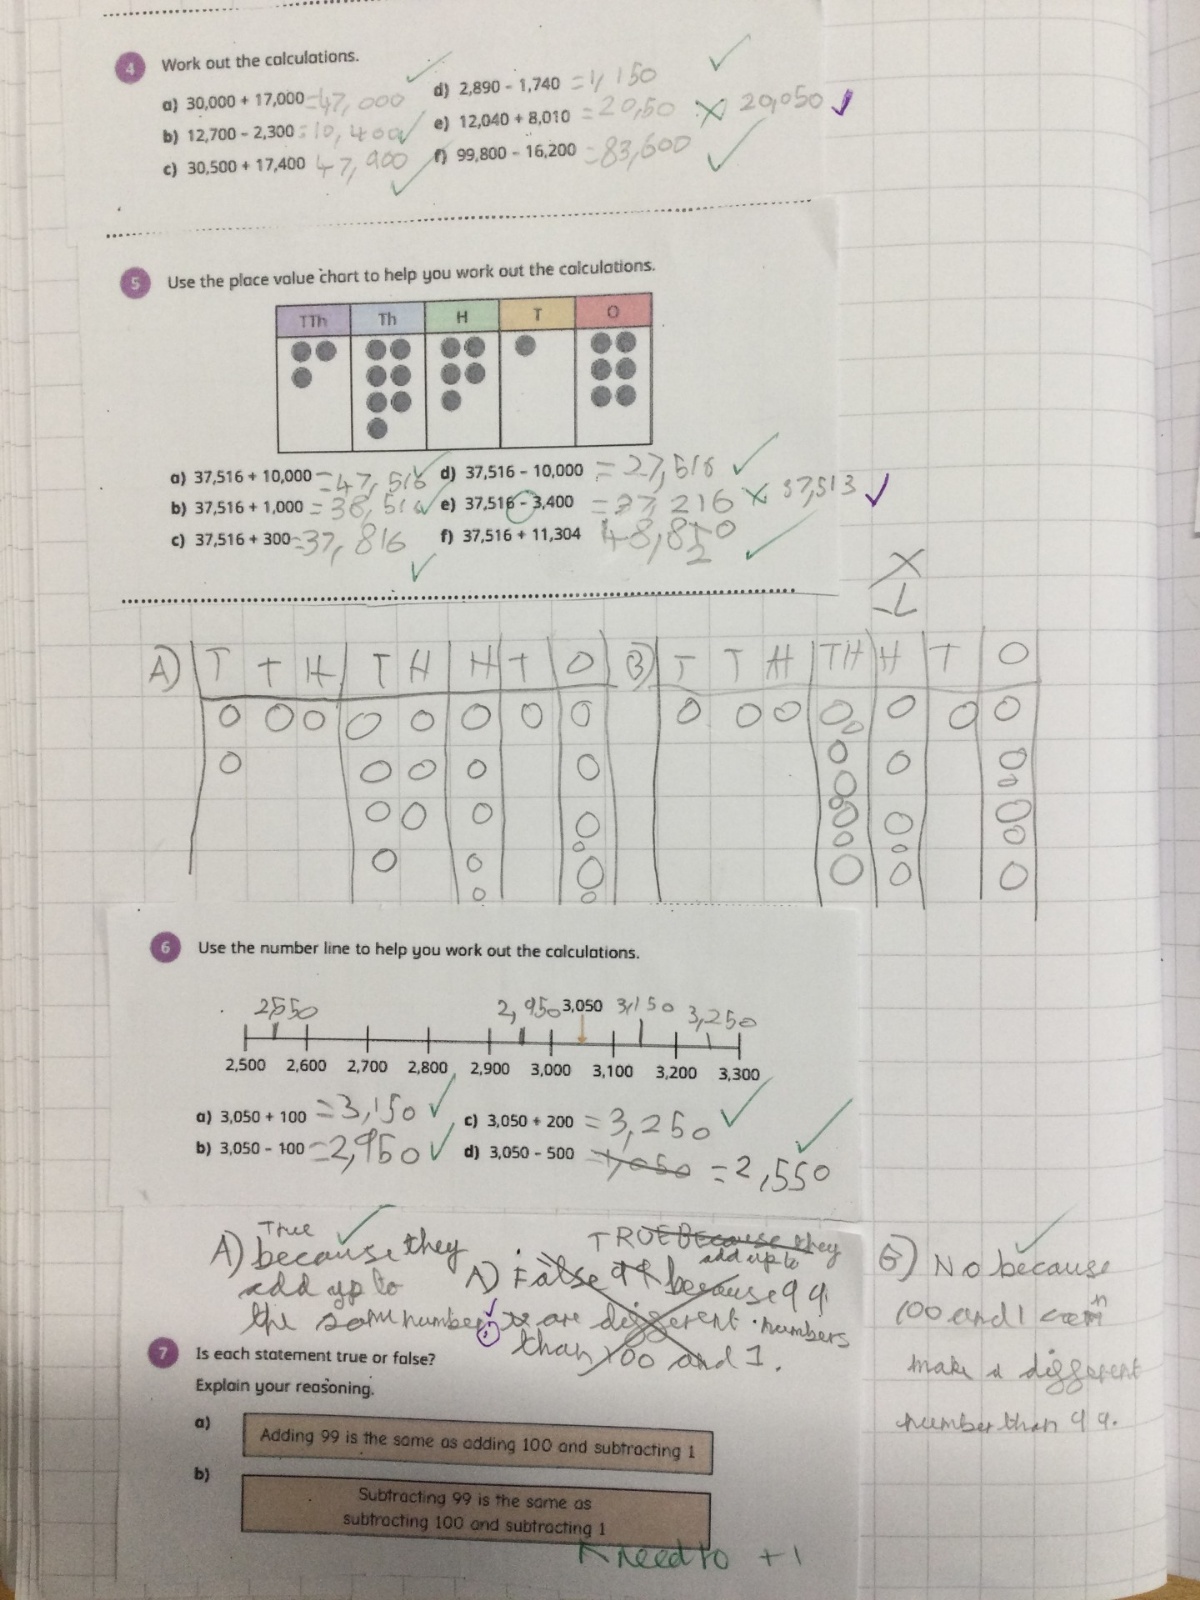 4 Work out the calculations.
a) 30,000 + 17,000 =47,000
d) 2,890 - 1,740 =1,150
b) 12,700 - 2,300 =10,400
e) 12,040 + 8,010 =20,50 20,050
c) 30,500 + 17,400 47,900
f) 99,800 - 16,200 =83,600
5 Use the place value chart to help you work out the calculations.
TTh Th H T O
a) 37,516 + 10,000 =47,516
d) 37,516 - 10,000 =27,516
b) 37,516 + 1,000 =38,516
e) 37,516 - 3,400 =37,216 37,513
c) 37,516 + 300 =37,816
f) 37,516 + 11,304 48,820
A) T T H T H H T O B) T T H TH H T O
6 Use the number line to help you work out the calculations.
2,550 2,950 3,050 3,150 3,250
2,500 2,600 2,700 2,800 2,900 3,000 3,100 3,200 3,300
a) 3,050 + 100 =3,150
c) 3,050 + 200 =3,250
b) 3,050 - 100 =2,950
d) 3,050 - 500 =1,050 =2,550
True
A) because they
add up to
the same number
TRUE Because they
add up to
A) False 99 because 99
are different numbers
than 100 and 1.
No because
100 and 1
make a different
number than 99.
7 Is each statement true or false?
Explain your reasoning.
a)
Adding 99 is the same as adding 100 and subtracting 1
b)
Subtracting 99 is the same as
subtracting 100 and subtracting 1
need to +1